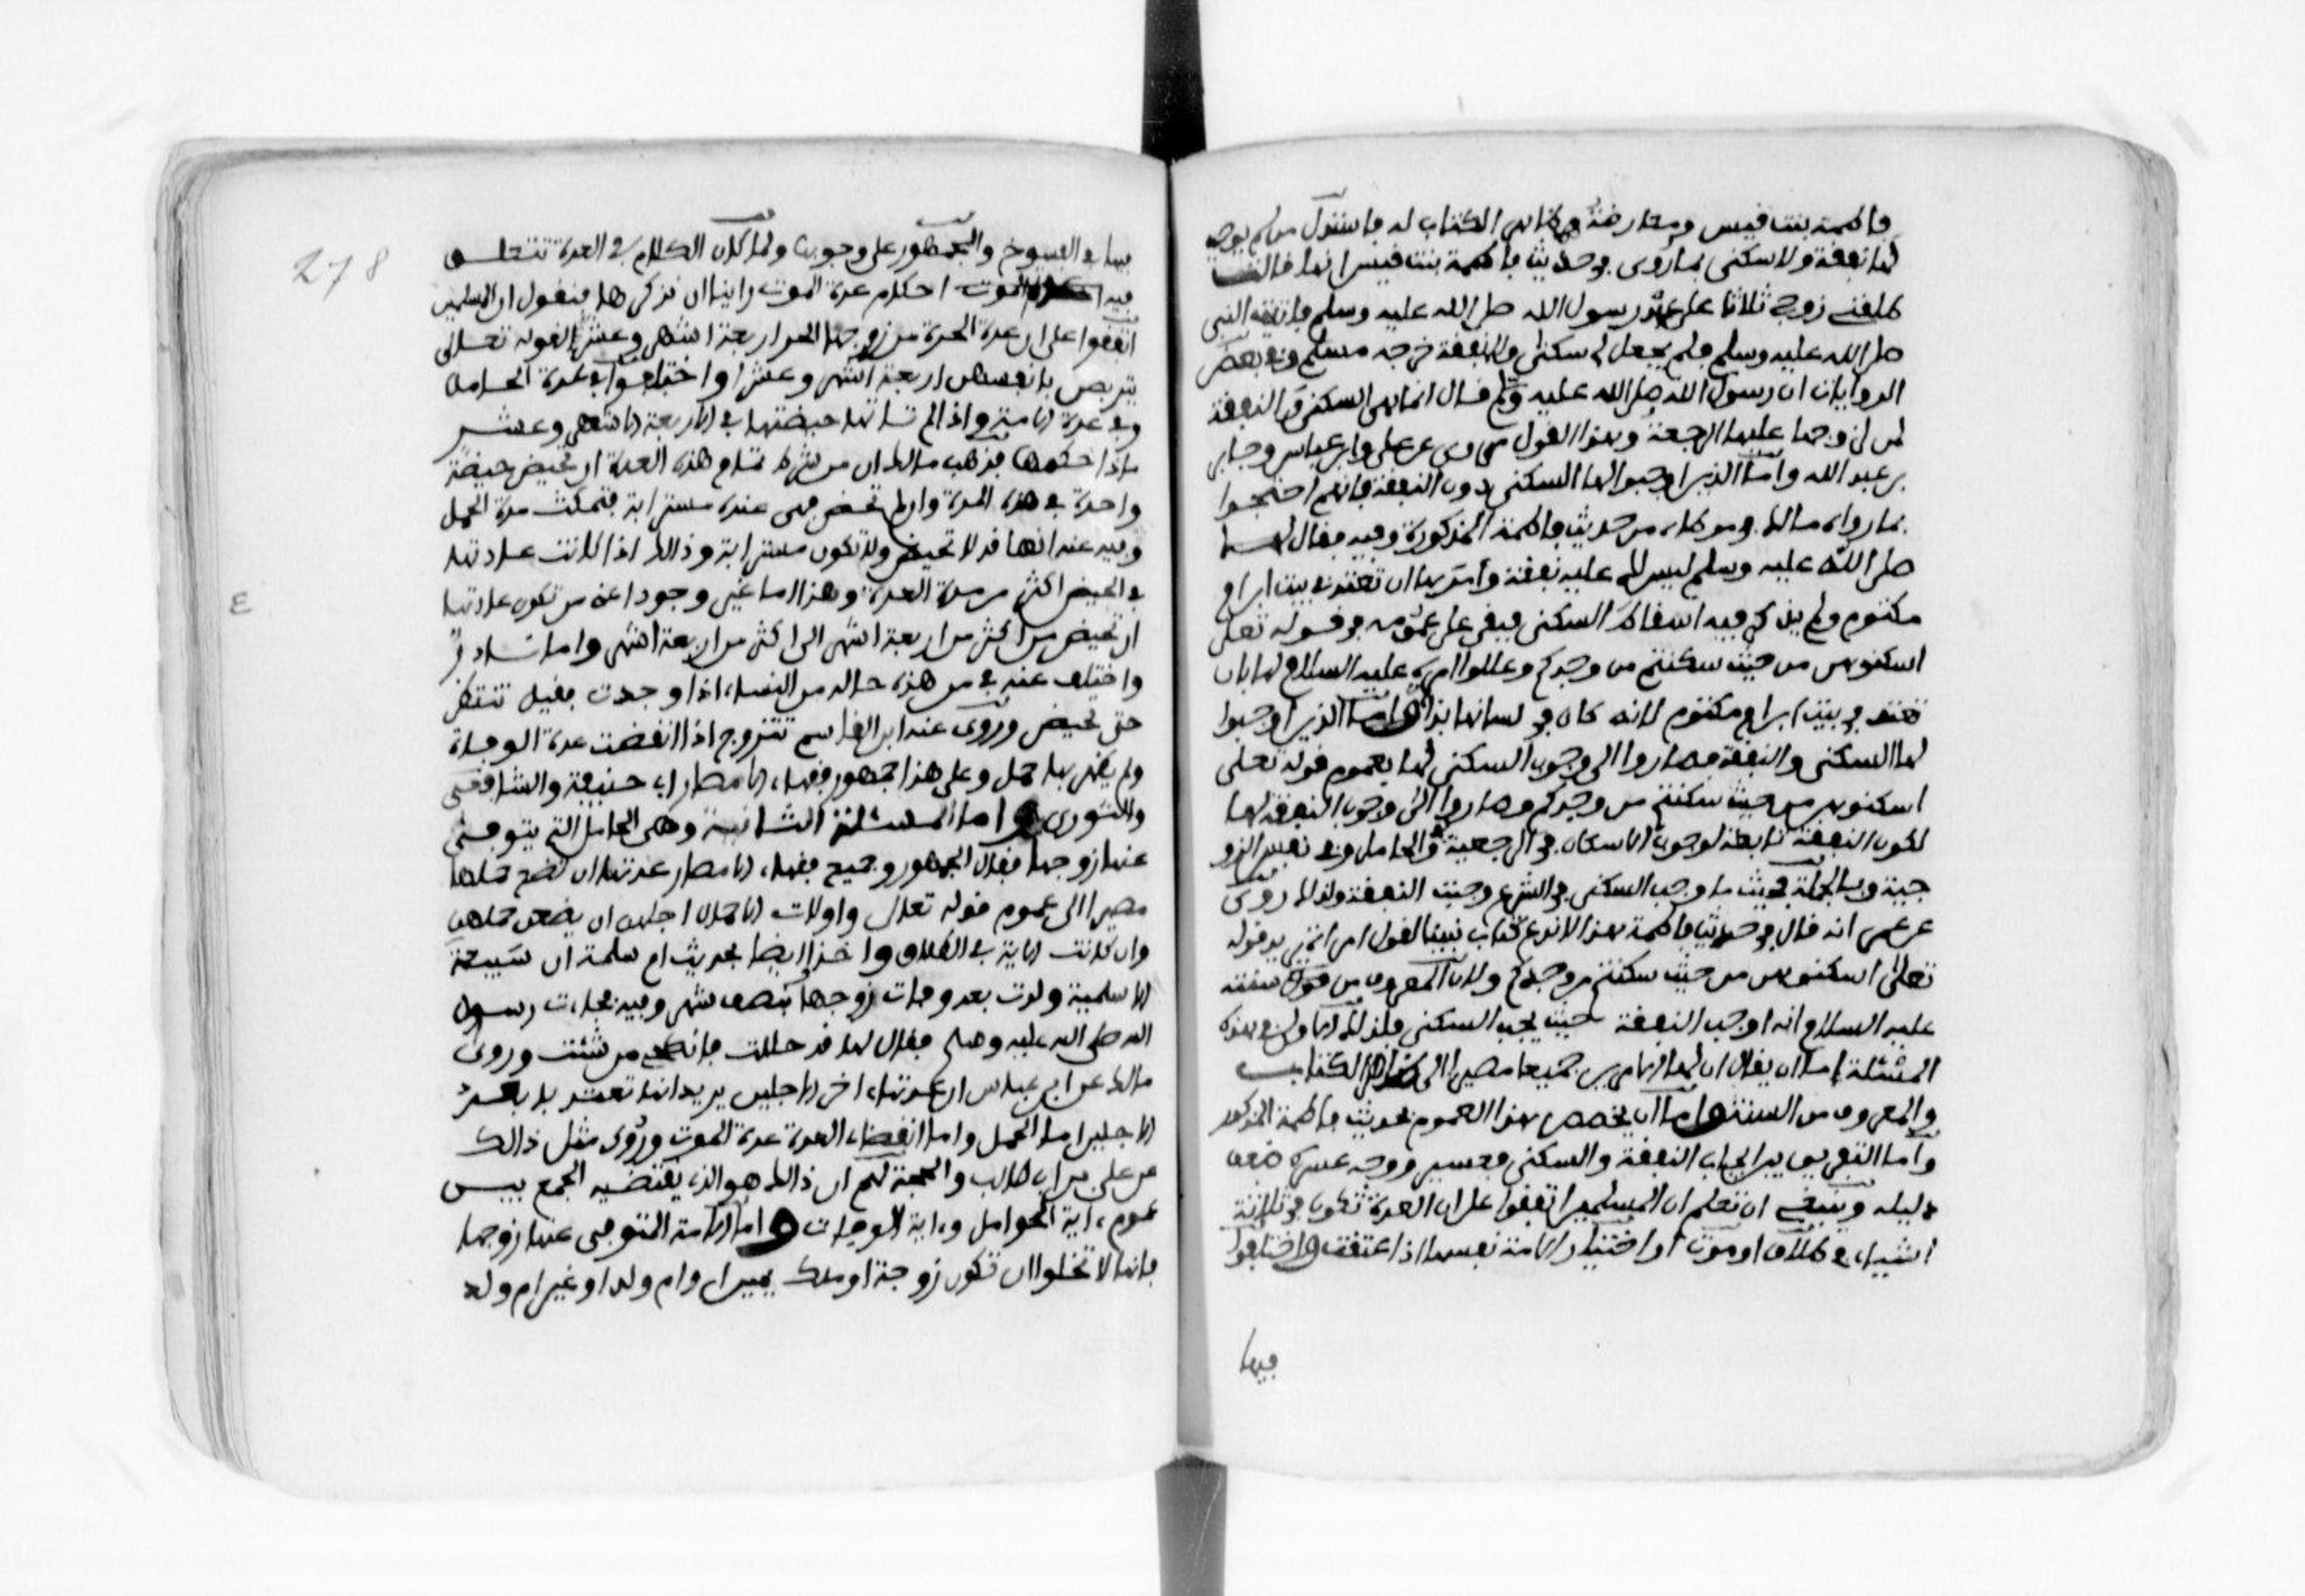 فاطمة بنت قيس ومعارضة ظاهر الكتاب له فاستدل من لم يوجب
لها نفقة ولا سكنى بما روى في حديث فاطمة بنت قيس انها قالت
طلقني زوجي ثلاثا على عهد رسول الله صلى الله عليه وسلم فاتيت النبي
صلى الله عليه وسلم فلم يجعل لي سكنى ولا نفقة خرجه مسلم وفي بعض
الروايات ان رسول الله صلى الله عليه وسلم قال انما السكنى والنفقة
لمن لزوجها عليها الرجعة وهذا القول مروى عن علي وابن عباس وجابر
بن عبد الله واما الذين اوجبوا لها السكنى دون النفقة فانهم احتجوا
بما رواه مالك في موطاه من حديث فاطمة المذكورة وفيه فقال لها
صلى الله عليه وسلم ليس لك عليه نفقة وامرها ان تعتد في بيت ابن ام
مكتوم ولم يذكر فيه اسقاط السكنى فبقي على عمومه في قوله تعلى
اسكنوهن من حيث سكنتم من وجدكم وعللوا امره عليه السلام لها بان
تعتد في بيت ابن ام مكتوم لانه كان في لسانها بذاء واما الذين اوجبوا
لها السكنى والنفقة فصاروا الى وجوب السكنى لها بعموم قوله تعلى
اسكنوهن من حيث سكنتم من وجدكم وصاروا الى وجوب النفقة لها
لكون النفقة تابعة لوجوب الاسكان في الرجعية وفي الحامل وفي نفس الزو
جية وبالجملة فحيث ما وجب السكنى في الشرع وجبت النفقة ولذلك روى
عن عمر انه قال في حديث فاطمة هذا لا ندع كتاب نبينا لقول امراة يريد قوله
تعالى اسكنوهن من حيث سكنتم من وجدكم ولان المعروف من قوله سنته
عليه السلام انه اوجب النفقة حيث يجب السكنى فلذلك الاولى في هذه
المسئلة اما ان يقال ان لها الامرين جميعا مصيرا الى ظاهر الكتاب
والمعروف من السنة واما ان يخصص هذا العموم بحديث فاطمة المذكور
واما التفريق بين ايجاب النفقة والسكنى فعسير ووجه عسره ضعف
دليله وينبغي ان تعلم ان المسلمين اتفقوا على ان العدة تكون في ثلاثة
اشياء في طلاق او موت او اختيار الامة نفسها اذا اعتقت واختلفوا
فيها
278
فيها في الفسوخ والجمهور على وجوبها ولما كان الكلام في العدة تتعلق
فيه احكام عدة الموت راينا ان نذكرها فنقول ان المسلمين
اتفقوا على ان عدة الحرة من زوجها الحر اربعة اشهر وعشرا لقوله تعالى
يتربصن بانفسهن اربعة اشهر وعشرا واختلفوا في عدة الحامل
وفي عدة الامة واذا لم تاتها حيضتها في الاربعة الاشهر وعشر
ماذا حكمها فذهب مالك ان من شرط تمام هذه العدة ان تحيض حيضة
واحدة في هذه المدة وان لم تحض فهي عنده مسترابة فتمكث مدة الحمل
وقيل عنه انها قد لا تحيض ولا تكون مسترابة وذلك اذا كانت عادتها
في الحيض اكثر من مدة العدة وهذا اما غير موجود اعني من تكون عادتها
ان تحيض من اكثر من اربعة اشهر الى اكثر من اربعة اشهر واما نادر
واختلف عنه في من هذه حاله من النساء اذا وجدت فقيل تنتظر
حتى تحيض وروى عنه ابن القاسم تتزوج اذا انقضت عدة الوفاة
ولم يظهر بها حمل وعلى هذا جمهور فقهاء الامصار ابي حنيفة والشافعي
والثوري واما المسئلة الثانية وهي الحامل التي يتوفى
عنها زوجها فقال الجمهور وجميع فقهاء الامصار عدتها ان تضع حملها
مصيرا الى عموم قوله تعالى واولات الاحمال اجلهن ان يضعن حملهن
وان كانت الاية في الطلاق واخذا ايضا بحديث ام سلمة ان سبيعة
الاسلمية ولدت بعد وفات زوجها بنصف شهر وفيه فجاءت رسول
الله صلى الله عليه وسلم فقال لها قد حللت فانكحي من شئت وروى
مالك عن ابن عباس ان عدتها اخر الاجلين يريد انها تعتد بابعد
الاجلين اما الحمل واما انقضاء العدة عدة الموت وروى مثل ذالك
عن علي بن ابي طالب والحجة لهم ان ذالك هو الذي يقتضيه الجمع بين
عموم ءاية الحوامل وءاية الوفات واما الامة المتوفى عنها زوجها
فانها لا تخلوا ان تكون زوجة او ملك يمين او ام ولد او غير ام ولد